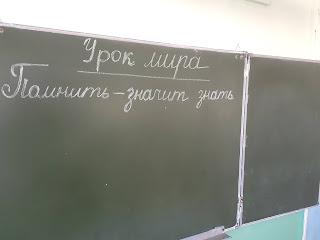 Урок мира
Помнить – значит знать